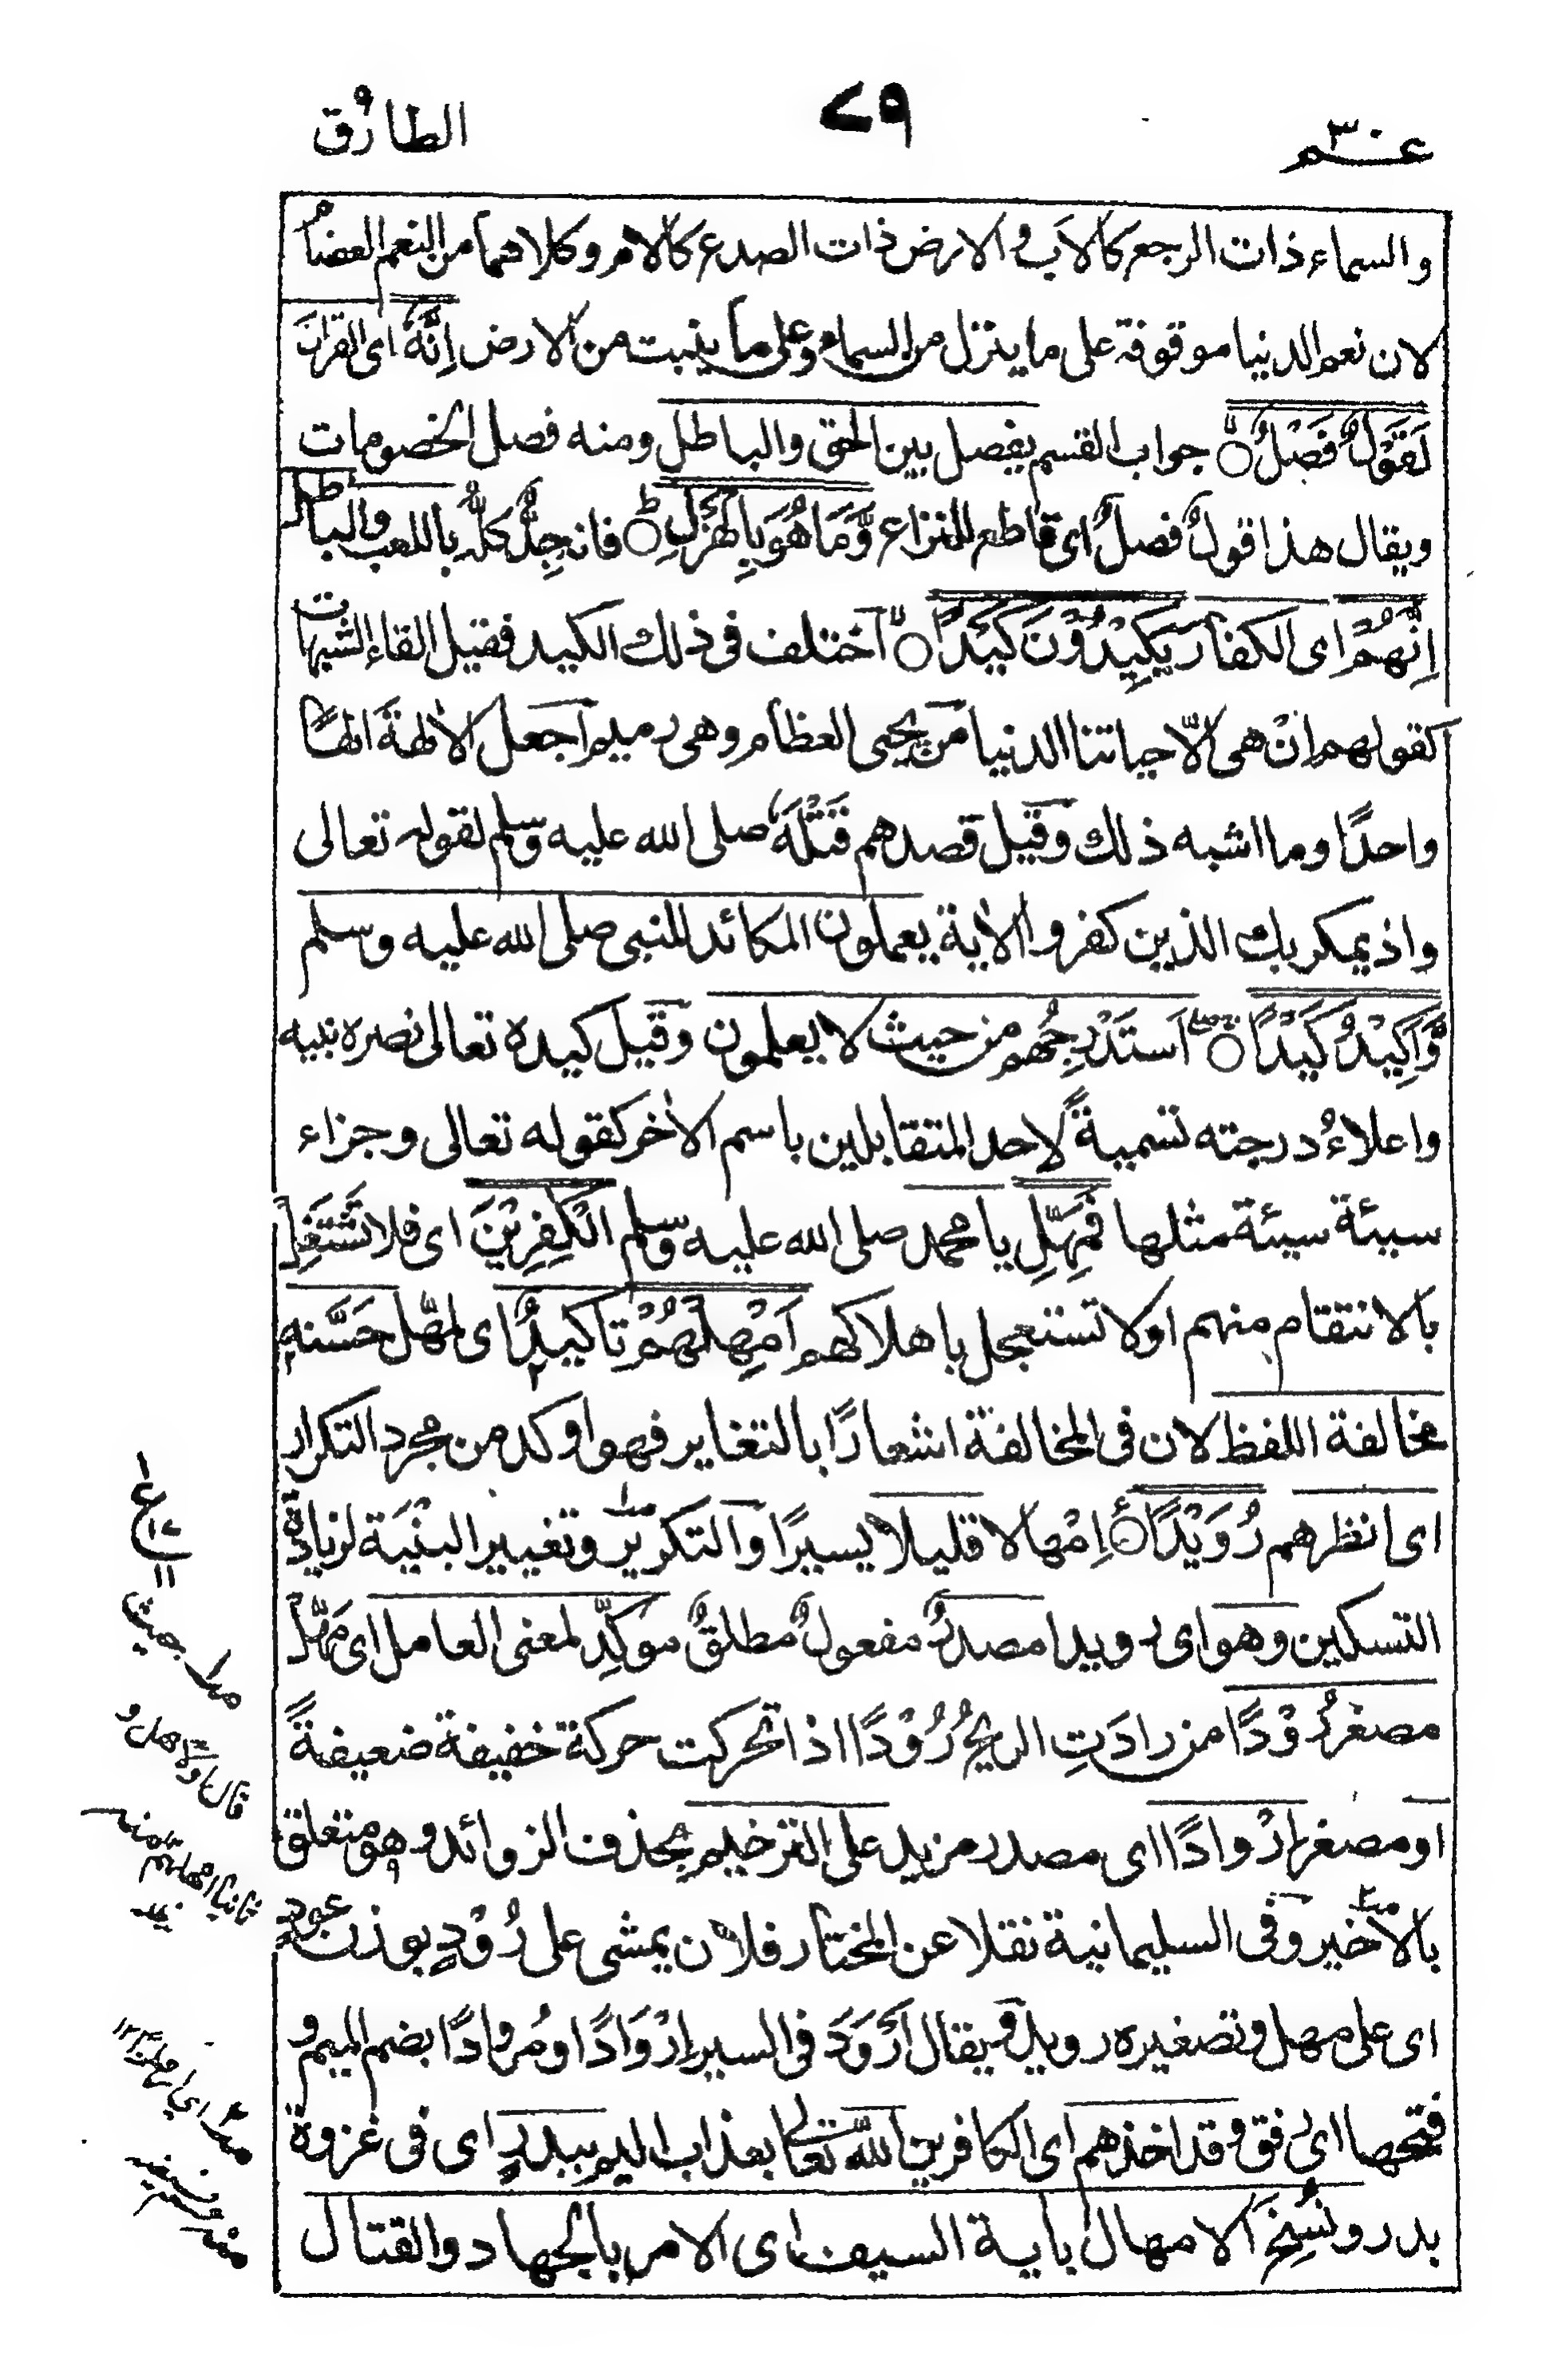 عـــم ٣٠
٧٩
الطارق
والسماء ذات الرجع كالاب والارض ذات الصدع كالام وكلاهما من النعم العضام
لان نعم الدنيا موقوفة على ما ينزل من السماء وعلى ما ينبت من الارض اِنَّهٗ اى القراٰن
لَقَوْلٌ فَصْلٌ جواب القسم يفصل بين الحق والباطل ومنه فصل الخصومات
ويقال هذا قولٌ فصلٌ اى قاطع للنزاع وَّمَا هُوَ بِالْهَزْلِ فانه جِدٌّ كلّه باللعب والباطل
اِنَّهُمْ اى الكفار يَكِيْدُوْنَ كَيْدًا اختلف فى ذلك الكيد فقيل القاء الشبهات
كقولهم اِنْ هى الّا حياتنا الدنيا من يحيى العظام وهى رميم اجعل الاٰلهة الٰهًا
واحدًا وما اشبه ذلك وقيل قصدهم قَتْلَهٗ صلى الله عليه وسلم لقوله تعالى
واذ يمكر بك الذين كفروا الاٰية يعملون المكائد للنبى صلى الله عليه وسلم
وَّاَكِيْدُ كَيْدًا اَستَدْرِجُهم من حيث لا يعلمون وقيل كيده تعالى نصره نبيه
واعلاءُ درجته تسميةً لاحد المتقابلين باسم الاٰخر كقوله تعالى وجزاء
سيئة سيئة مثلها فَمَهِّلِ يا محمد صلى الله عليه وسلم الْكٰفِرِيْنَ اى فلا تَشْتَغِل
بالانتقام منهم اولا تستعجل باهلاكهم اَمْهِلْهُمْ تاكيدٌ اى لمهّل حَسَّنه
مخالفة اللفظ لان فى المخالفة اشعارًا بالتغاير فهو اوكد من مجرد التكرار
اى انظرهم رُوَيْدًا اِمْهالا قليلا يسيرًا والتكرير وتغيير البنْيَة لزيادة
التسكين وهو اى رويدا مصدرٌ مفعولٌ مطلقٌ موكِّد لمعنى العامل اى مَهّل
مصغر رُوْدًا من رادَتِ الريحُ رُوْدًا اذا تحركت حركة خفيفة ضعيفةً
او مصغر اِرْوادًا اى مصدر مزيد على الترخيم بحذف الزوائد وهو متعلق
بالاخير وفى السليمانية نقلا عن المختار فلان يمشى على رُوْدٍ بوزن عودٍ
اى على مهل وتصغيره رويد ويقال اَرْوَدَ فى السير اِرْوَادًا ومُروادًا بضم الميم و
فتحها اى رفق وقد اخذهم اى الكافرين الله تعالى بعذاب اليم ببدرٍ اى فى غزوة
بدر ونُسِخَ الامهال باٰية السيف اى الامر بالجهاد والقتال